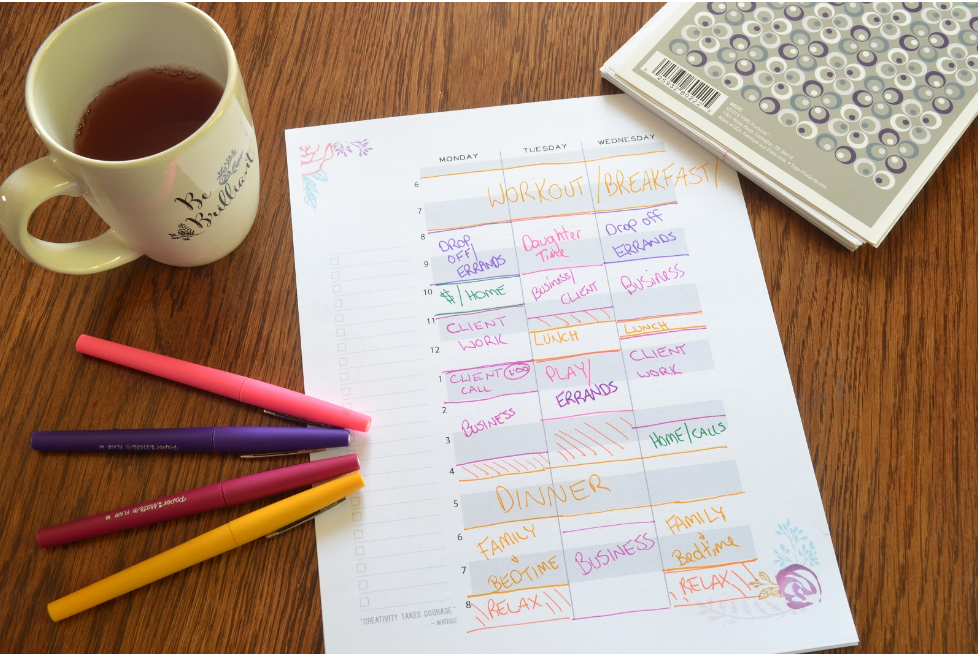 Be
Brilliant
MONDAY TUESDAY WEDNESDAY
6
WORKOUT / BREAKFAST /
7
8
DROP
OFF/
ERRANDS
Daughter
Time
Drop off
ERRANDS
9
10
$ / HOME
Business/
CLIENT
Business
11
CLIENT
WORK
LUNCH
LUNCH
12
CLIENT
WORK
1
CLIENT 1:00
CALL
PLAY/
ERRANDS
2
BUSINESS
3
HOME/CALLS
4
DINNER
5
6
FAMILY
&
BEDTIME
BUSINESS
FAMILY
&
Bedtime
7
8
RELAX
RELAX
"CREATIVITY TAKES COURAGE"
- MATISSE
Paper Mate FLAIR M
Paper Mate FLAIR M